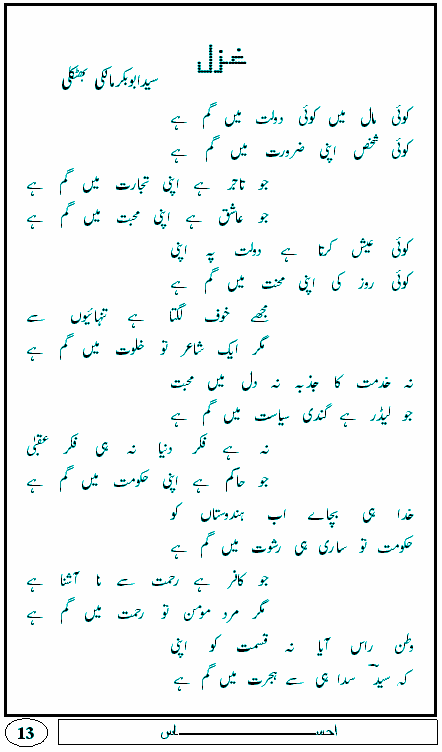 غزل
سید ابوبکر مالکی بھٹکلی
کوئی مال میں کوئی دولت میں گم ہے
کوئی شخص اپنی ضرورت میں گم ہے
جو تاجر ہے اپنی تجارت میں گم ہے
جو عاشق ہے اپنی محبت میں گم ہے
کوئی عیش کرتا ہے دولت پہ اپنی
کوئی روز کی اپنی محنت میں گم ہے
مجھے خوف لگتا ہے تنہائیوں سے
مگر ایک شاعر تو خلوت میں گم ہے
نہ خدمت کا جذبہ نہ دل میں محبت
جو لیڈر ہے گندی سیاست میں گم ہے
نہ ہے فکر دنیا نہ ہی فکر عقبٰی
جو حاکم ہے اپنی حکومت میں گم ہے
خدا ہی بچاے اب ہندوستاں کو
حکومت تو ساری ہی رشوت میں گم ہے
جو کافر ہے رحمت سے نا آشنا ہے
مگر مرد مومن تو رحمت میں گم ہے
وطن راس آیا نہ قسمت کو اپنی
کہ سیدؔ سدا ہی سے ہجرت میں گم ہے
احســـــــــــــــــــاس
13